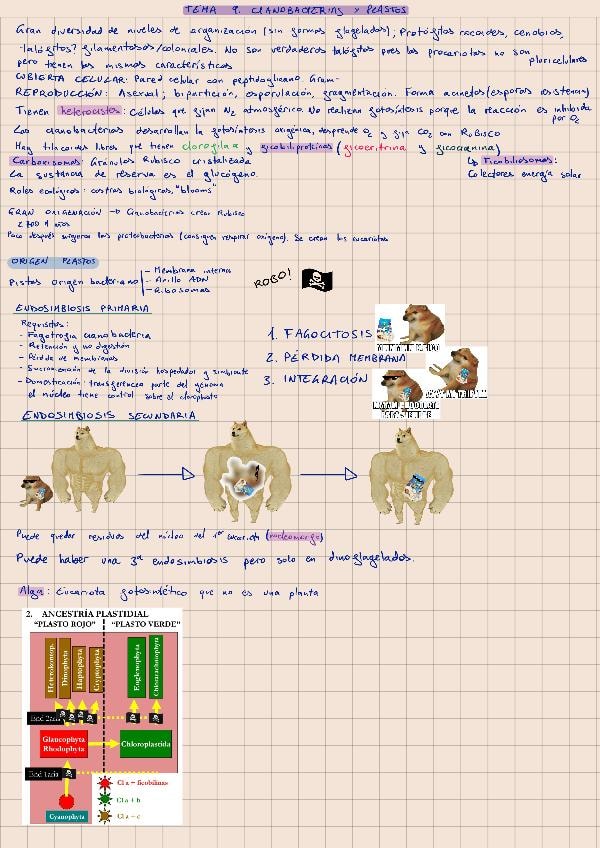 TEMA 9. CIANOBACTERIAS Y PLASTOS
Gran diversidad de niveles de organización (sin formas flageladas); Protófitos cocoides, cenobios,
talófitos? filamentosos/coloniales. No son verdaderos talófitos pues los procariotas no son pluricelulares
pero tienen las mismas características
CUBIERTA CELULAR: Pared celular con peptidoglicano. Gram-
REPRODUCCIÓN: Asexual; bipartición, esporulación, fragmentación. Forma acinetos (esporas resistencia)
Tienen heterocistos: Células que fijan N2 atmosférico. No realizan fotosíntesis porque la reacción es inhibida
por O2
Las cianobacterias desarrollan la fotosíntesis oxigénica, desprende O2 y fija CO2 con RuBisCO
Hay tilacoides libres que tienen clorofila a y ficobiliproteínas (ficoeritrina y ficocianina)
Carboxisomas: Gránulos Rubisco cristalizada
↳ Ficobilisomas:
La sustancia de reserva es el glucógeno.
Colectores energía solar
Roles ecológicos: costras biológicas, "blooms"
GRAN OXIGENACIÓN → Cianobacterias crean Rubisco
2.700 M años
Poco después surgieron las proteobacterias (consiguen respirar oxígeno). Se crean los eucariotas
ORIGEN PLASTOS
Pistas origen bacteriano
- Membrana interna
- Anillo ADN
- Ribosomas
ROBO!
ENDOSIMBIOSIS PRIMARIA
Requisitos:
- Fagotrofia cianobacteria
- Retención y no digestión
- Pérdida de membranas
- Sincronización de la división hospedador y simbionte
- Domesticación: transferencia parte del genoma
el núcleo tiene control sobre el cloroplasto
1. FAGOCITOSIS
2. PÉRDIDA MEMBRANA
3. INTEGRACIÓN
ENDOSIMBIOSIS SECUNDARIA
Puede quedar residuos del núcleo del 1er eucariota (nucleomorfo)
Puede haber una 3ª endosimbiosis pero solo en dinoflagelados.
Alga: Eucariota fotosintético que no es una planta
2. ANCESTRÍA PLASTIDIAL
"PLASTO ROJO" "PLASTO VERDE"
Heterokontop.
Dinophyta
Haptophyta
Cryptophyta
Euglenophyta
Chlorarachnophyta
End 2aria
Glaucophyta
Rhodophyta
Chloroplastida
End 1aria
Cyanophyta
Cl a + ficobilinas
Cl a + b
Cl a + c